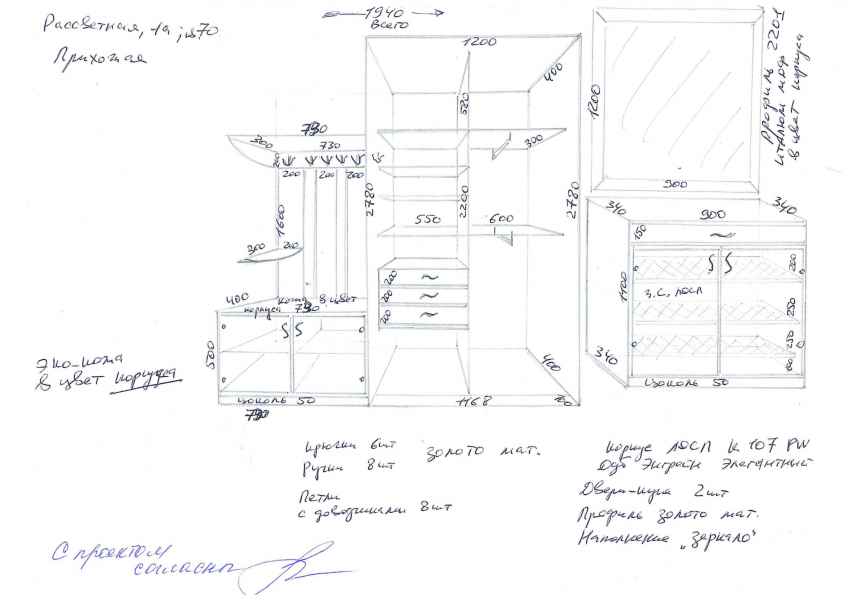 Рассветная, 1а; п70
Прихожая
1940
Всего
1200
400
520
300
2780
2200
2780
550
600
200
200
200
400
1168
100
790
300
730
200
200
200
200
1600
300
200
400
кожа в цвет
корпуса 790
500
цоколь 50
790
Эко-кожа
в цвет корпуса
1200
900
Профиль 2201
италюм мод
в цвет корпуса
340
900
340
150
1100
200
з.с. ЛДСП
250
250
340
цоколь 50
крючки 6шт золото мат.
Ручки 8шт
Петли
с доводчиками 8шт
Корпус ЛДСП К 107 PW
Дуб Элегантный
Двери-купе 2шт
Профиль золото мат.
Наполнение „зеркало"
С проектом
согласны